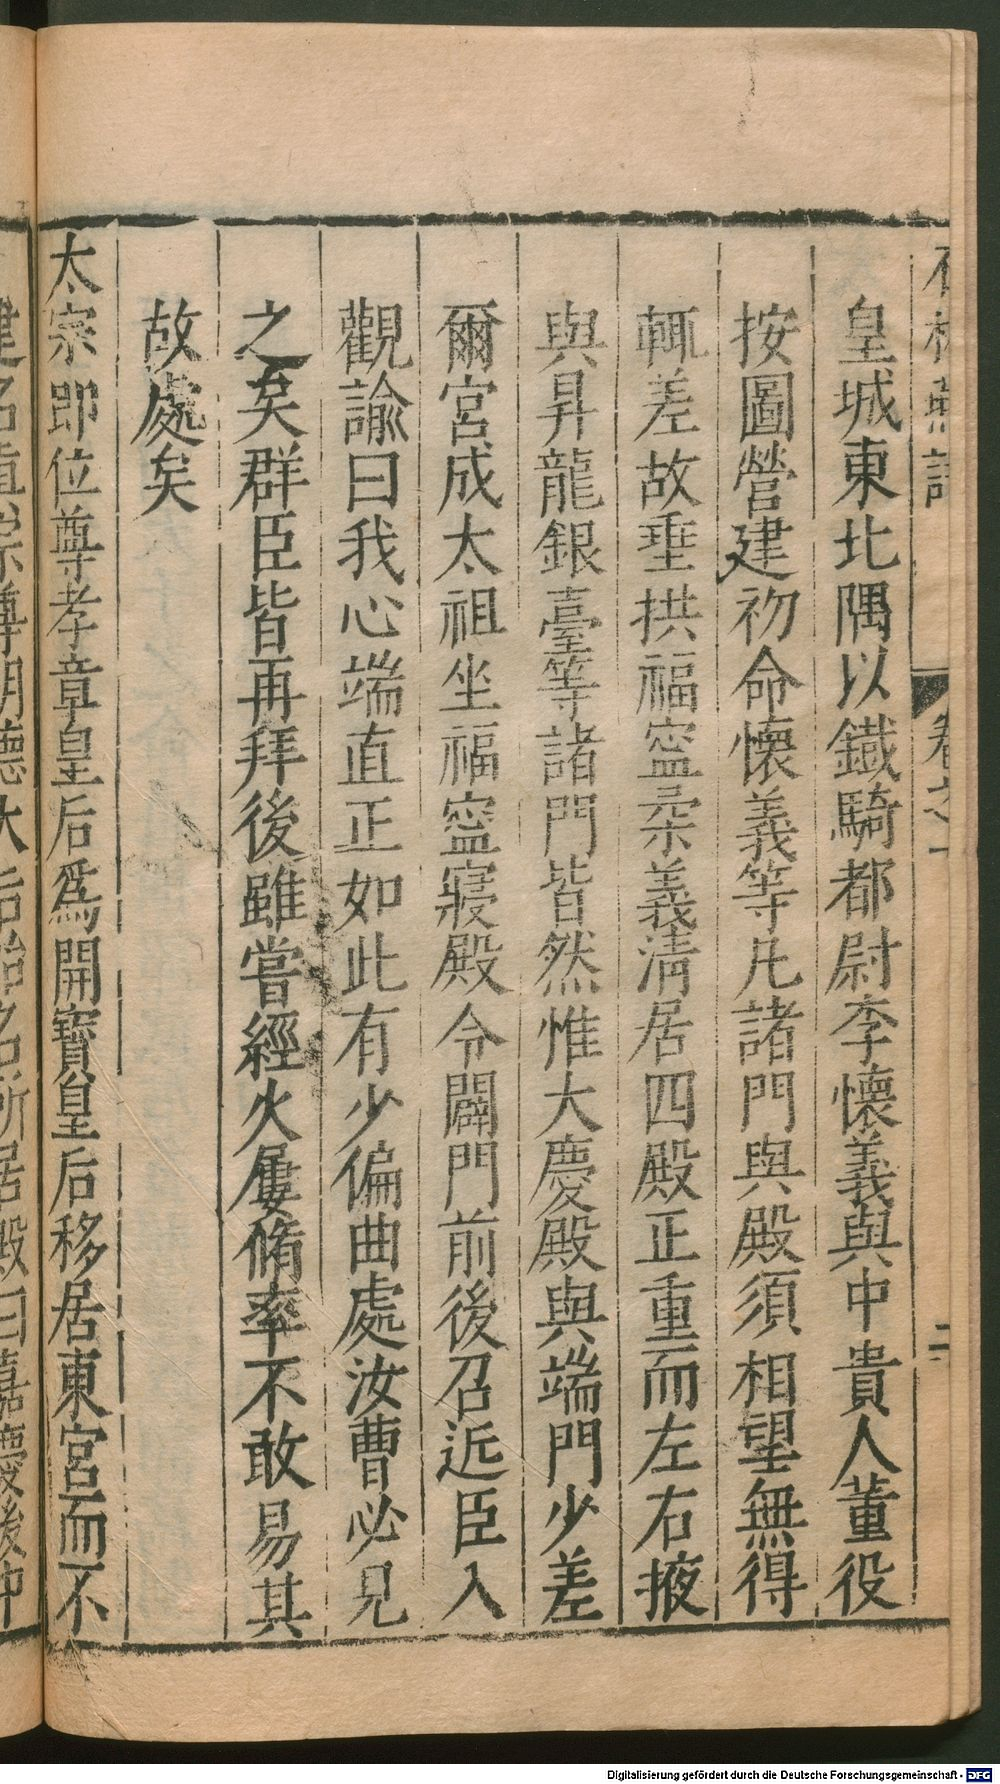 卷之一
二
皇城東北隅以鐵騎都尉李懷義與中貴人董役
按圖營建初命懷義等凡諸門與殿須相望無得
輒差故垂拱福寍朶義清居四殿正重而左右掖
與昇龍銀臺等諸門皆然惟大慶殿與端門少差
爾宮成太祖坐福寍寢殿令闢門前後召近臣入
觀諭曰我心端直正如此有少偏曲處汝曹必見
之矣群臣皆再拜後雖嘗經火屢脩率不敢易其
故處矣
太宗即位尊孝章皇后爲開寶皇后移居東宮而不
Digitalisierung gefördert durch die Deutsche Forschungsgemeinschaft - DFG